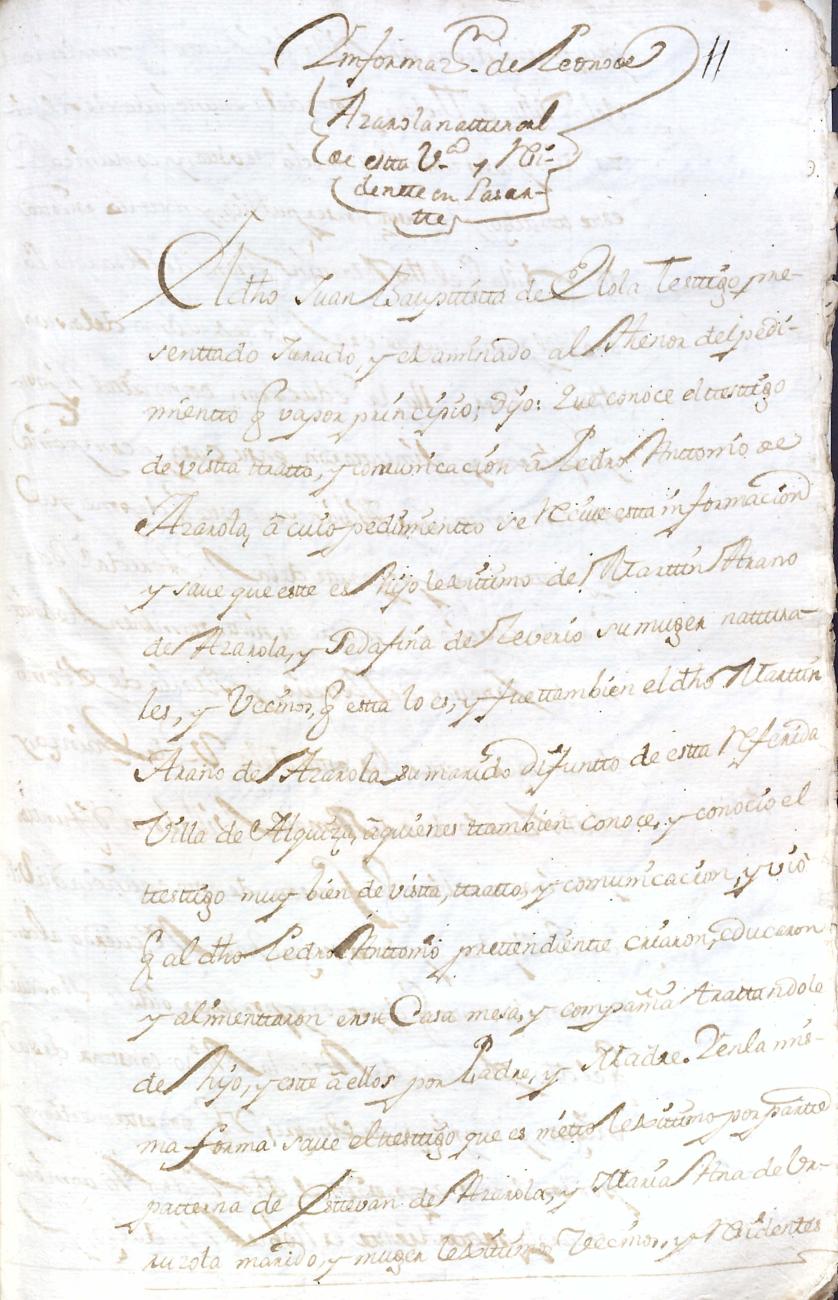 Informaz.on de Pedro de
11
Azarola nattural
de estta V.a y Ressi-
dentte en Lasar-
tte
El dho Juan Bauptistta de Olola Testtigo pre-
senttado Jurado, y examinado al Thenor del pedi-
mientto q va por principio; dijo: Que conoce el testtigo
de vistta tratto, y comunicacion â Pedro Anttonio de
Azarola, â cuio pedimentto se Reciue estta informacion
y saue que estte es hijo lexittimo de Marttin Arano
de Azarola, y Sedafina de Reverio su muger nattura-
les, y Vecinos, q estta lo es, y fue ttambien el dho Marttin
Arano de Azarola su marido difuntto de estta Referida
Villa de Alquiza, â quienes ttambien conoce, y conocio el
testtigo muy bien de vistta, tratto, y comunicacion, y vio
q al dho Pedro Anttonio prettendientte criaron, educaron
y alimenttaron en su Casa mesa, y compañia trattandole
de hijo, y estte â ellos por Padre, y Madre. Y en la mis-
ma forma saue el testtigo que es nietto lexittimo por partte
patterna de Esttevan de Azarola, y Maria Ana de Ur-
ruzola marido, y muger lexittimos Vecinos, y Residentes